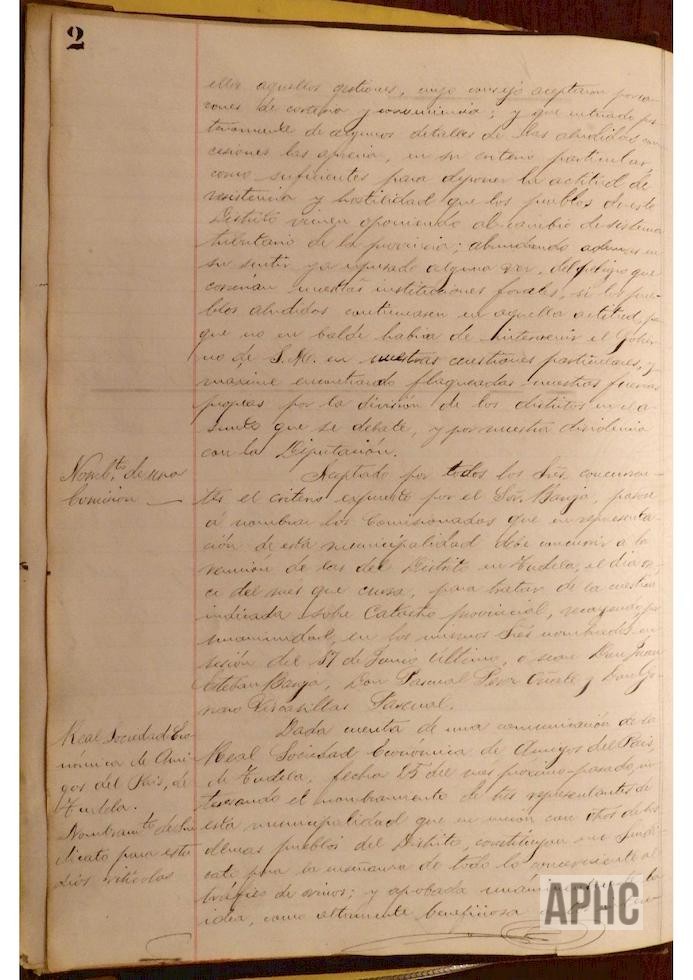 2
ellos aquellas gestiones, cuyo consejo aceptaron por ra-
zones de cortesía y conveniencia; y que enterado pos-
teriormente de algunos detalles de las aludidas con-
cesiones las aprecia, en su criterio particular,
como suficientes para deponer la actitud de
resistencia y hostilidad que los pueblos de este
Distrito vienen oponiendo al cambio de sistema
tributario de la provincia; abundando además en
su sentir, ya expresado alguna vez, del peligro que
corrían nuestras instituciones forales, si los pue-
blos aludidos continuasen en aquella actitud, por
que no en balde había de intervenir el Gobier-
no de S.M. en nuestras cuestiones particulares, y
máxime encontrando flaqueadas nuestras fuerzas
propias por la división de los distritos en el a-
sunto que se debate, y por nuestra disidencia
con la Diputación.
Nomb.to de una
Comisión
Aceptado por todos los Sres. concurren-
tes el criterio expuesto por el Sor. Barja, pasose
á nombrar los Comisionados que en representa-
ción de esta municipalidad debe concurrir a la
reunión de los del Distrito en Tudela, el dia on-
ce del mes que cursa, para tratar de la cuestión
indicada sobre Catastro provincial, recayendo por
unanimidad, en los mismos Sres nombrados en
sesión del 17 de Junio último, o sean Don Juan
Esteban Barja, Don Pascual Don
Pascual.
Real Sociedad Eco-
nómica de Ami-
gos del País, de
Tudela.
Nombram.to de Sin-
dicato para estu-
dios vitícolas
Dada cuenta de una comunicación de la
Real Sociedad Económica de Amigos del País,
de Tudela, fecha 25 del mes próximo-pasado, in-
teresando el nombramiento de tres representantes de
esta municipalidad que en unión con otros de los
demas pueblos del Distrito, constituyan un Sindi-
cato para la enseñanza de todo lo concerniente al
tráfico de vinos; y aprobada la
idea, como altamente beneficiosa
APHC